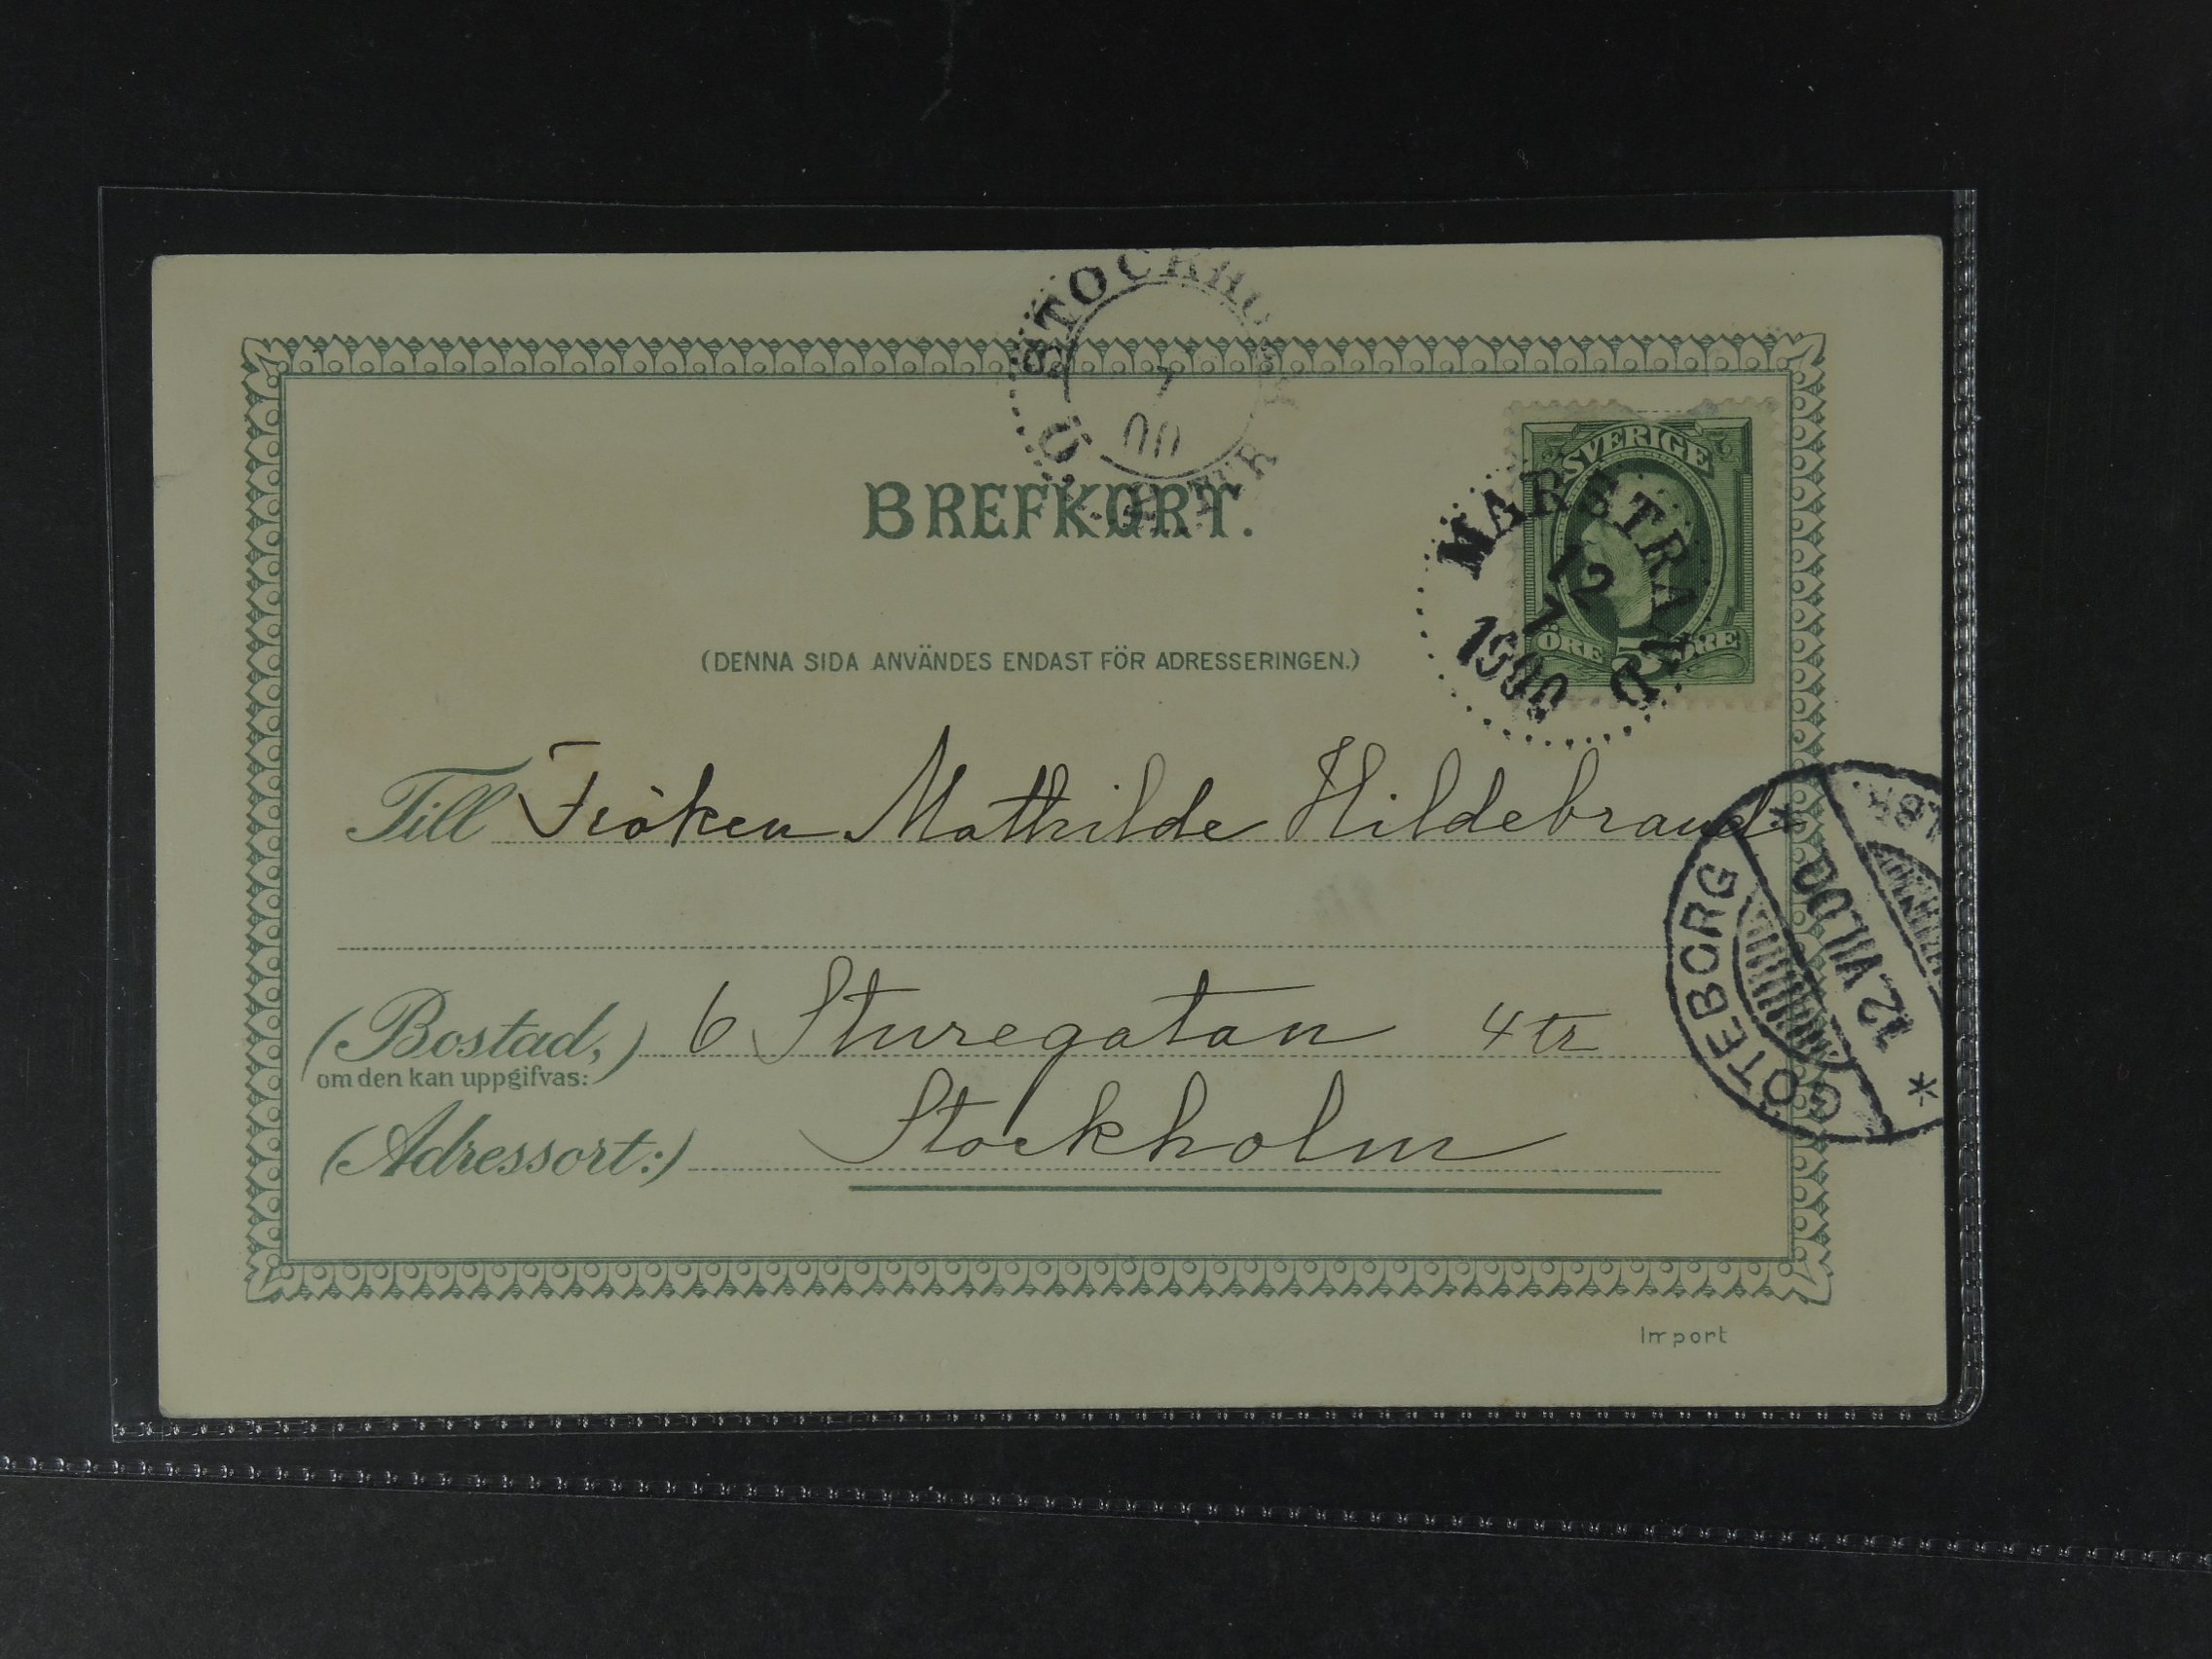 STOCKHO
7
00
BREFKORT.
SVERIGE
ÖRE 5 ÖRE
MARSTRAND
12
7
1900
(DENNA SIDA ANVÄNDES ENDAST FÖR ADRESSERINGEN.)
Till Fröken Mathilde Hildebrand
GÖTEBORG
12.VII.00
(Bostad,) 6 Sturegatan 4 tr
om den kan uppgifvas:
(Adressort:) Stockholm
Import